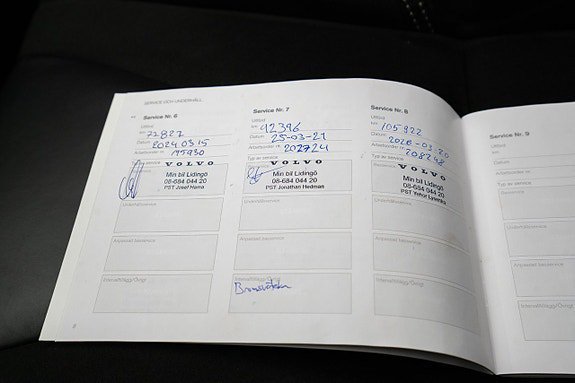 SERVICE OCH UNDERHÅLL
Service Nr. 6
Utförd
km 72827
Datum 2024 03 15
Arbetsorder nr. 195930
Typ av service
VOLVO
Min bil Lidingö
08-684 044 20
PST Josef Hama
Underhållsservice
Anpassad basservice
Intervalltillägg/Övrigt
8
Service Nr. 7
Utförd
km 92396
Datum 25-03-21
Arbetsorder nr. 202724
Typ av service
VOLVO
Min bil Lidingö
08-684 044 20
PST Jonathan Hedman
Underhållsservice
Anpassad basservice
Intervalltillägg/Övrigt
Bromsvätska
Service Nr. 8
Utförd
km 105922
Datum 2026-03-20
Arbetsorder nr. 208248
Typ av service
Basservice
VOLVO
Min bil Lidingö
08-684 044 20
PST Yehor
Underhållsservice
Anpassad basservice
Intervalltillägg/Övrigt
Service Nr. 9
Utförd
km
Datum
Arbetsorder nr.
Typ av service
Basservice
Underhållsservice
Anpassad basservice
Intervalltillägg/Övrigt